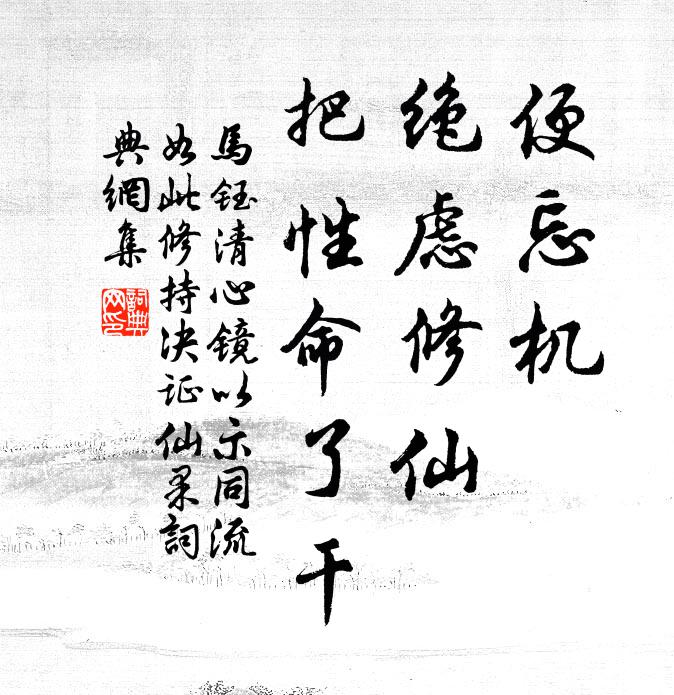 便忘机
绝虑修仙
把性命了干
馬钰清心镜以示同流
如此修持决证仙果詞
典網集
詞典网印